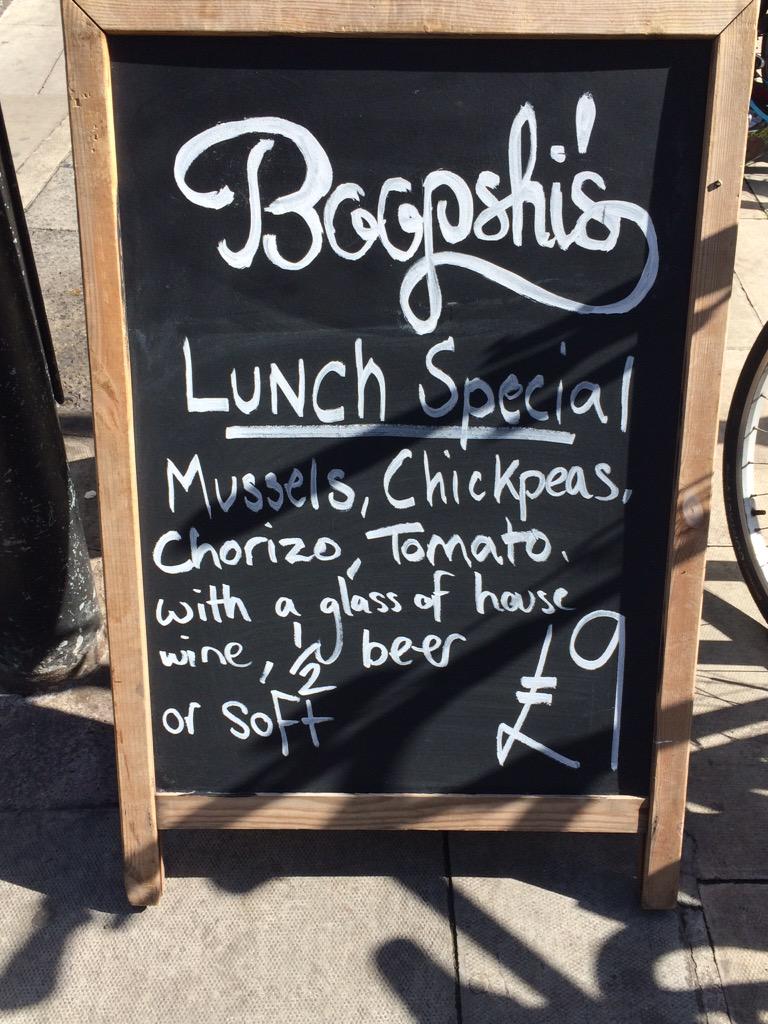 Boopshi's
Lunch Special
Mussels, Chickpeas,
Chorizo, Tomato.
with a glass of house
wine, 1/2 beer
or soft £9